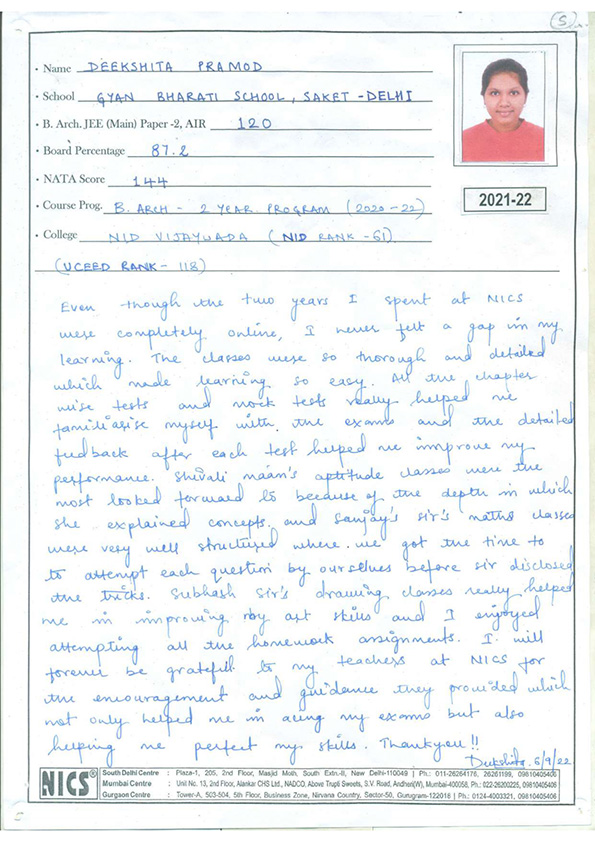 5
• Name DEEKSHITA PRAMOD
• School GYAN BHARATI SCHOOL, SAKET - DELHI
• B. Arch. JEE (Main) Paper -2, AIR 120
• Board Percentage 87.2
• NATA Score 144
• Course Prog. B. ARCH - 2 YEAR PROGRAM (2020-22)
2021-22
• College NID VIJAYWADA (NID RANK -61)
(UCEED RANK - 118)
Even though the two years I spent at NICS
were completely online, I never felt a gap in my
learning. The classes were so thorough and detailed
which made learning so easy. All the chapter
wise tests and mock tests really helped me
familiarise myself with the exams and the detailed
feedback after each test helped me improve my
performance. Shivali maam's aptitude classes were the
most looked forward to because of the depth in which
she explained concepts. and Sanjay's sir's maths classes
were very well structured where we got the time to
to attempt each question by ourselves before sir disclosed
the tricks. Subhash Sir's drawing classes really helped
me in improving my art skills and I enjoyed
attempting all the homework assignments. I will
forever be grateful to my teachers at NICS for
the encouragement and guidance they provided which
not only helped me in acing my exams but also
helping me perfect my skills. Thankyou!!
Deekshita 6/9/22
NICS®
South Delhi Centre : Plaza-1, 205, 2nd Floor, Masjid Moth, South Extn.-II, New Delhi-110049 | Ph.: 011-26264176, 26261199, 09810405406
Mumbai Centre : Unit No. 13, 2nd Floor, Alankar CHS Ltd., NADCO, Above Trupti Sweets, S.V. Road, Andheri(W), Mumbai-400058, Ph.: 022-26200225, 09810405406
Gurgaon Centre : Tower-A, 503-504, 5th Floor, Business Zone, Nirvana Country, Sector-50, Gurugram-122018 | Ph.: 0124-4003321, 09810405406